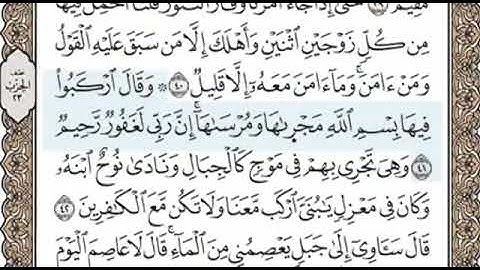 مُّقِيمٌ ٣٩ حَتَّىٰٓ إِذَا جَآءَ أَمْرُنَا وَفَارَ ٱلتَّنُّورُ قُلْنَا ٱحْمِلْ فِيهَا
مِن كُلٍّ زَوْجَيْنِ ٱثْنَيْنِ وَأَهْلَكَ إِلَّا مَن سَبَقَ عَلَيْهِ ٱلْقَوْلُ
وَمَنْ ءَامَنَ ۚ وَمَآ ءَامَنَ مَعَهُۥٓ إِلَّا قَلِيلٌ ٤٠ ۞ وَقَالَ ٱرْكَبُوا۟
فِيهَا بِسْمِ ٱللَّهِ مَجْر۪ىٰهَا وَمُرْسَىٰهَآ ۚ إِنَّ رَبِّى لَغَفُورٌ رَّحِيمٌ
٤١ وَهِىَ تَجْرِى بِهِمْ فِى مَوْجٍ كَٱلْجِبَالِ وَنَادَىٰ نُوحٌ ٱبْنَهُۥ
وَكَانَ فِى مَعْزِلٍ يَـٰبُنَىَّ ٱرْكَب مَّعَنَا وَلَا تَكُن مَّعَ ٱلْكَـٰفِرِينَ ٤٢
قَالَ سَـَٔاوِىٓ إِلَىٰ جَبَلٍ يَعْصِمُنِى مِنَ ٱلْمَآءِ ۚ قَالَ لَا عَاصِمَ ٱلْيَوْمَ
نصف
الحزب
٢٣